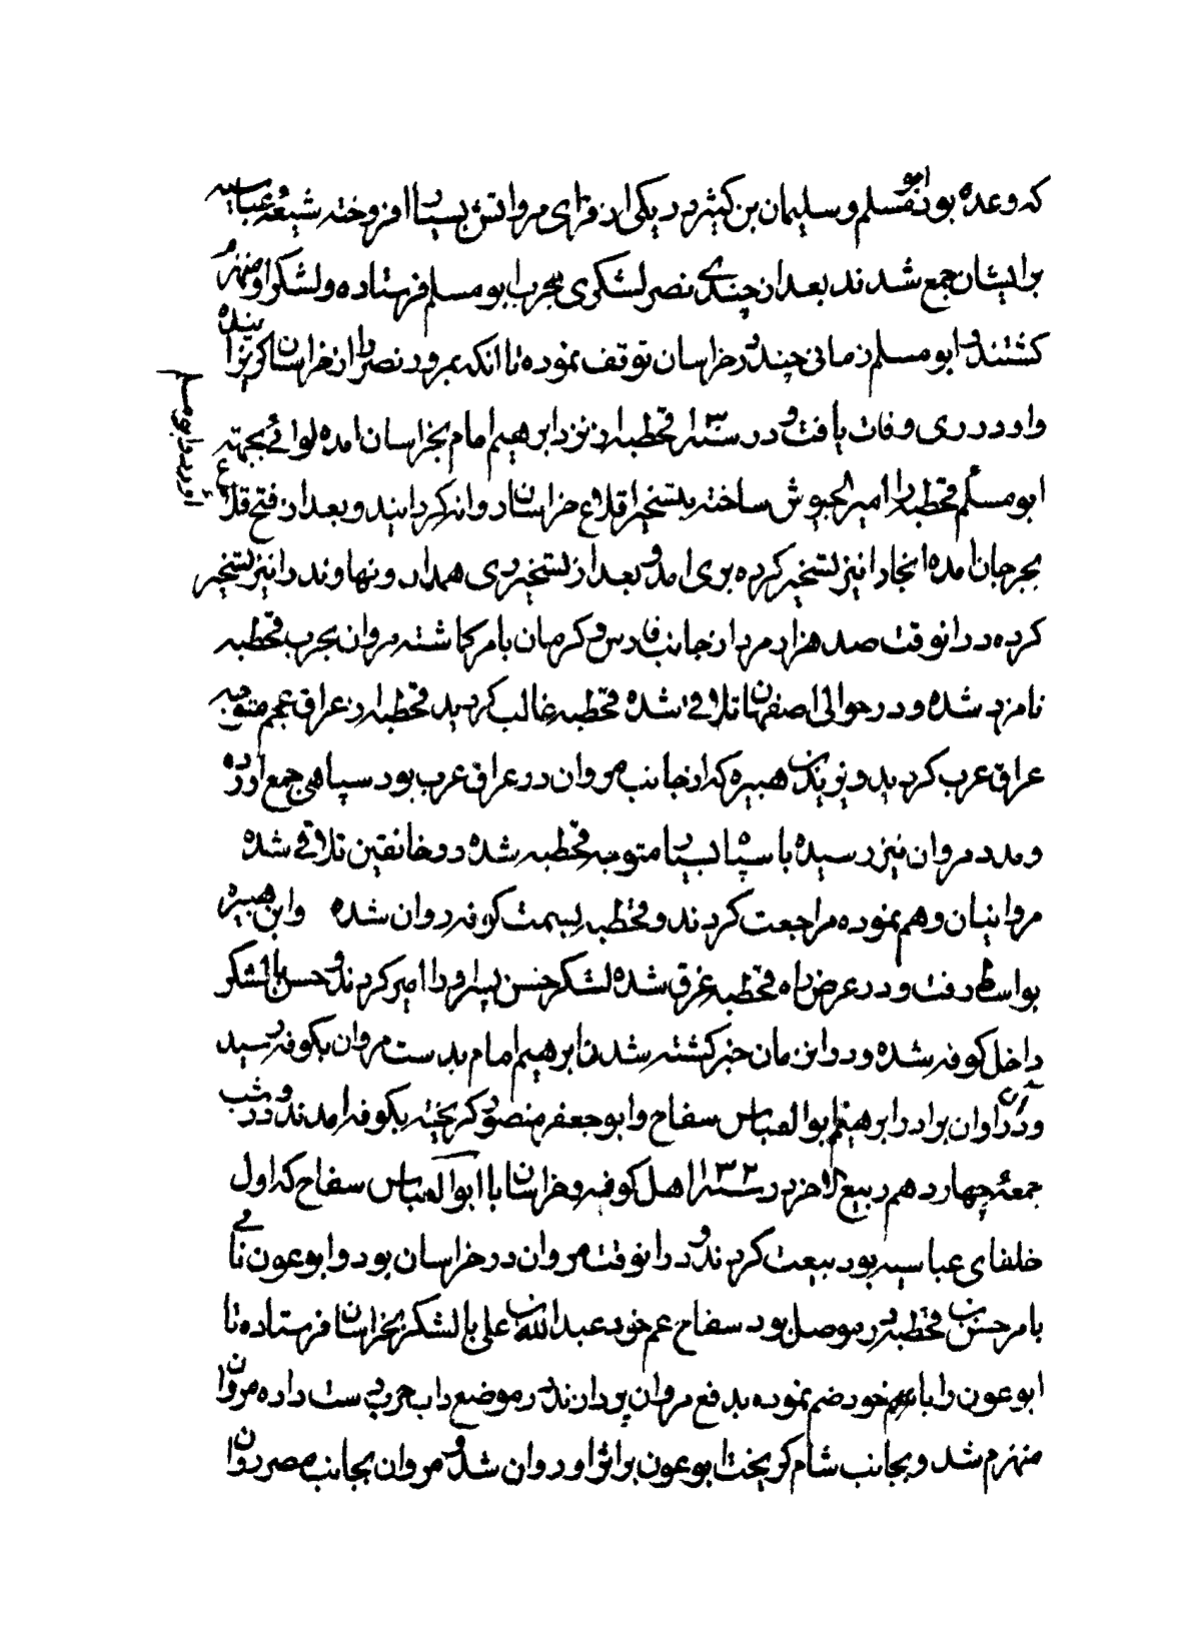 که وعده بود ابومسلم و سلیمان بن کثیر در یکی از قرای مرو اتش بسیار افروخته شیعهٔ عباسیه
برایشان جمع شدند بعد از چندی نصر لشکری بحرب ابو مسلم فرستاده و لشکر او منهزم
کشتند و ابو مسلم زمانی چند در خراسان توقف نموده تا انکه بمرور نصر را از خراسان کریزانیده
و او در ری وفات یافت و در سنه ۱۳۰ قحطبه از نزد ابرهیم امام بخراسان امده لوائے بجهته
ابومسلم اورد و ابومسلم
ابو مسلم قحطبه را امیر الجیوش ساخته بتسخیر قلاع خراسان روانه کردانیند و بعد از فتح قلاع
بجرجان امده انجا را نیز تسخیر کرده بری امد و بعد از تسخیر ری همدان و نهاوند را نیز تسخیر
کرده در انوقت صد هزار مرد از جانب فارس و کرمان بامر کماشته مروان بحرب قحطبه
نامزد شده و در حوالی اصفهان تلاقی شده قحطبه غالب کردید قحطبه از عراق عجم متوجه
عراق عرب کردید و یزید بن هبیره که از جانب مروان در عراق عرب بود سپاهی جمع اورده
و مدد مروان نیز رسیده با سپاه بسیار متوجه قحطبه شده در خانقین تلاقی شده
مروانیان وهم نموده مراجعت کردند و قحطبه بسمت کوفه روان شده وابن هبیره
بواسط رفت و در عرض راه قحطبه غرق شده لشکر حسن پسر او را امیر کردند و حسن با لشکر
داخل کوفه شده و در این زمان خبر کشته شدن ابرهیم امام بدست مروان بکوفه رسید
و در ان اوان برادر ابرهیم ابو العباس سفاح و ابو جعفر منصور کریخته بکوفه امدند و در شب
جمعهٔ چهاردهم ربیع الاخر در سنه ۱۳۲ اهل کوفه و خراسان با ابو العباس سفاح که اول
خلفای عباسیه بود بیعت کردند و در انوقت مروان در خراسان بود و ابو عون نامی
بامر حسن بن قحطبه در موصل بود سفاح عم خود عبد الله بن علی با لشکر بخراسان فرستاده تا
ابو عون را با خود ضم نموده بدفع مروان پردازند در موضع زاب حرب دست داده مروان
منهزم شد و بجانب شام کریخت ابو عون بر اثر او روان شد و مروان بجانب مصر روان